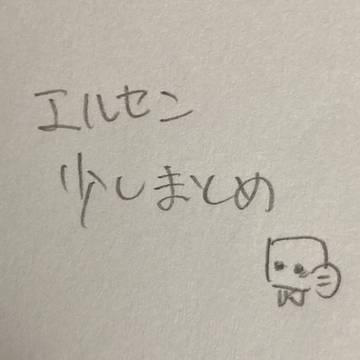 エルセン
少しまとめ